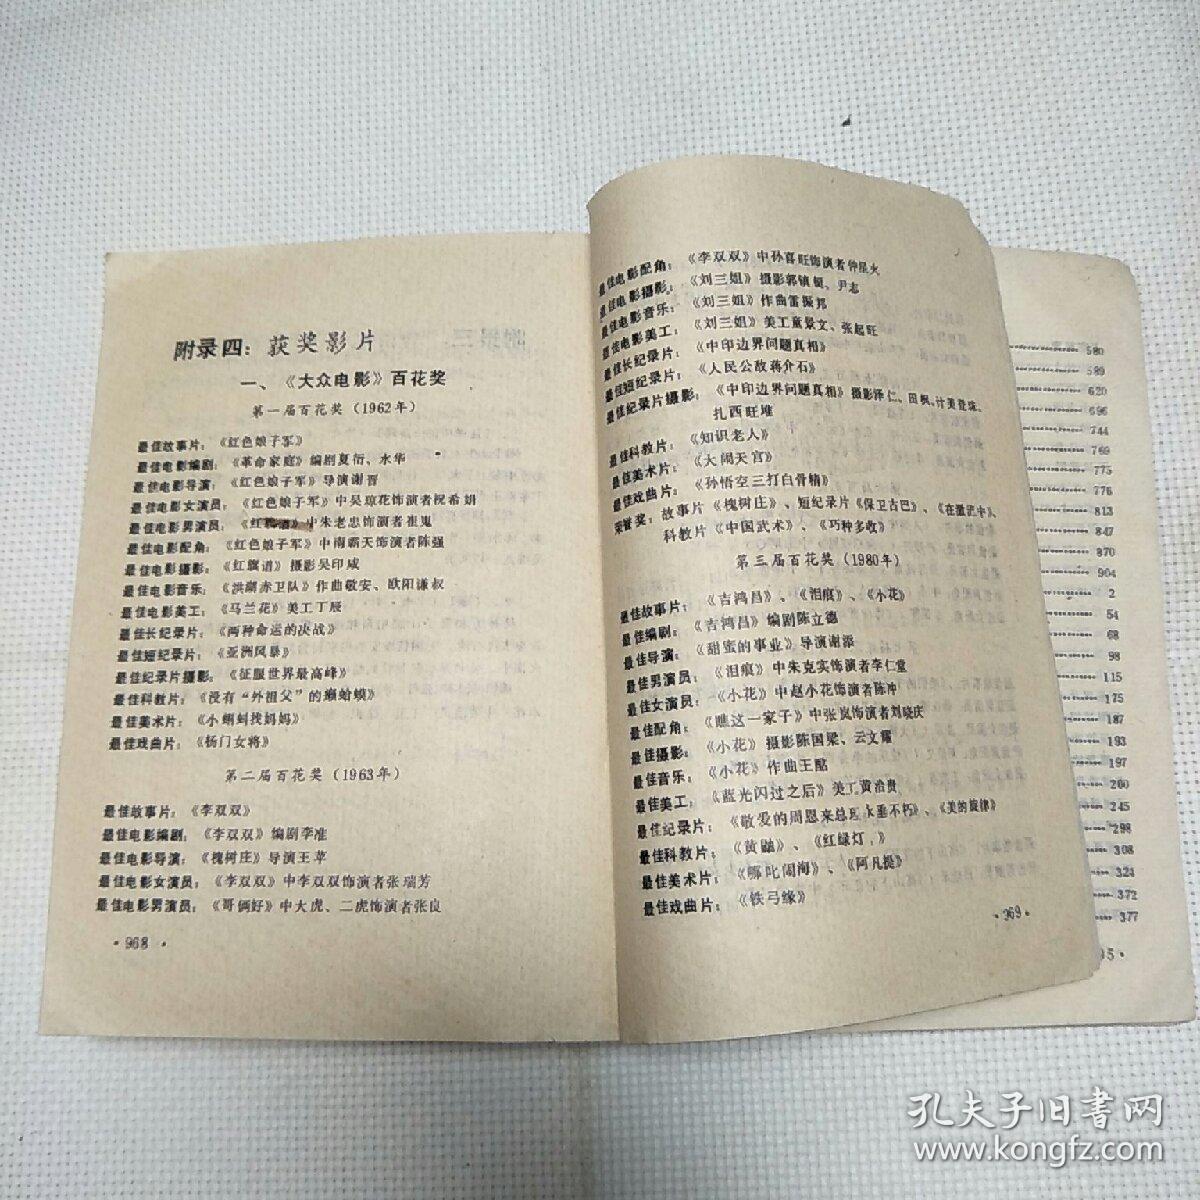 附录四：获奖影片
一、《大众电影》百花奖
第一届百花奖（1962年）
最佳故事片：《红色娘子军》
最佳电影编剧：《革命家庭》编剧夏衍、水华
最佳电影导演：《红色娘子军》导演谢晋
最佳电影女演员：《红色娘子军》中吴琼花饰演者祝希娟
最佳电影男演员：《红旗谱》中朱老忠饰演者崔嵬
最佳电影配角：《红色娘子军》中南霸天饰演者陈强
最佳电影摄影：《红旗谱》摄影吴印咸
最佳电影音乐：《洪湖赤卫队》作曲敬安、欧阳谦叔
最佳电影美工：《马兰花》美工丁辰
最佳长纪录片：《两种命运的决战》
最佳短纪录片：《亚洲风暴》
最佳纪录片摄影：《征服世界最高峰》
最佳科教片：《没有“外祖父”的癞蛤蟆》
最佳美术片：《小蝌蚪找妈妈》
最佳戏曲片：《杨门女将》
第二届百花奖（1963年）
最佳故事片：《李双双》
最佳电影编剧：《李双双》编剧李准
最佳电影导演：《槐树庄》导演王苹
最佳电影女演员：《李双双》中李双双饰演者张瑞芳
最佳电影男演员：《哥俩好》中大虎、二虎饰演者张良
·968·
最佳电影配角：《李双双》中孙喜旺饰演者仲星火
最佳电影摄影：《刘三姐》摄影郭镇铤、尹志
最佳电影音乐：《刘三姐》作曲雷振邦
最佳电影美工：《刘三姐》美工童景文、张起旺
最佳长纪录片：《中印边界问题真相》
最佳短纪录片：《人民公敌蒋介石》
最佳纪录片摄影：《中印边界问题真相》摄影泽仁、田枫、计美登珠、
扎西旺堆
最佳科教片：《知识老人》
最佳美术片：《大闹天宫》
最佳戏曲片：《孙悟空三打白骨精》
荣誉奖：故事片《槐树庄》、短纪录片《保卫古巴》、《在激流中》、
科教片《中国武术》、《巧种多收》
第三届百花奖（1980年）
最佳故事片：《吉鸿昌》、《泪痕》、《小花》
最佳编剧：《吉鸿昌》编剧陈立德
最佳导演：《甜蜜的事业》导演谢添
最佳男演员：《泪痕》中朱克实饰演者李仁堂
最佳女演员：《小花》中赵小花饰演者陈冲
最佳配角：《瞧这一家子》中张岚饰演者刘晓庆
最佳摄影：《小花》摄影陈国梁、云文耀
最佳音乐：《小花》作曲王酩
最佳美工：《蓝光闪过之后》美工黄洽贵
最佳纪录片：《敬爱的周恩来总理永垂不朽》、《美的旋律》
最佳科教片：《黄鼬》、《红绿灯》
最佳美术片：《哪吒闹海》、《阿凡提》
最佳戏曲片：《铁弓缘》
·969·
580
589
620
696
744
769
775
776
813
847
870
904
2
54
68
98
115
175
187
193
197
200
245
298
308
323
372
377
15·
孔夫子旧书网
www.kongfz.com